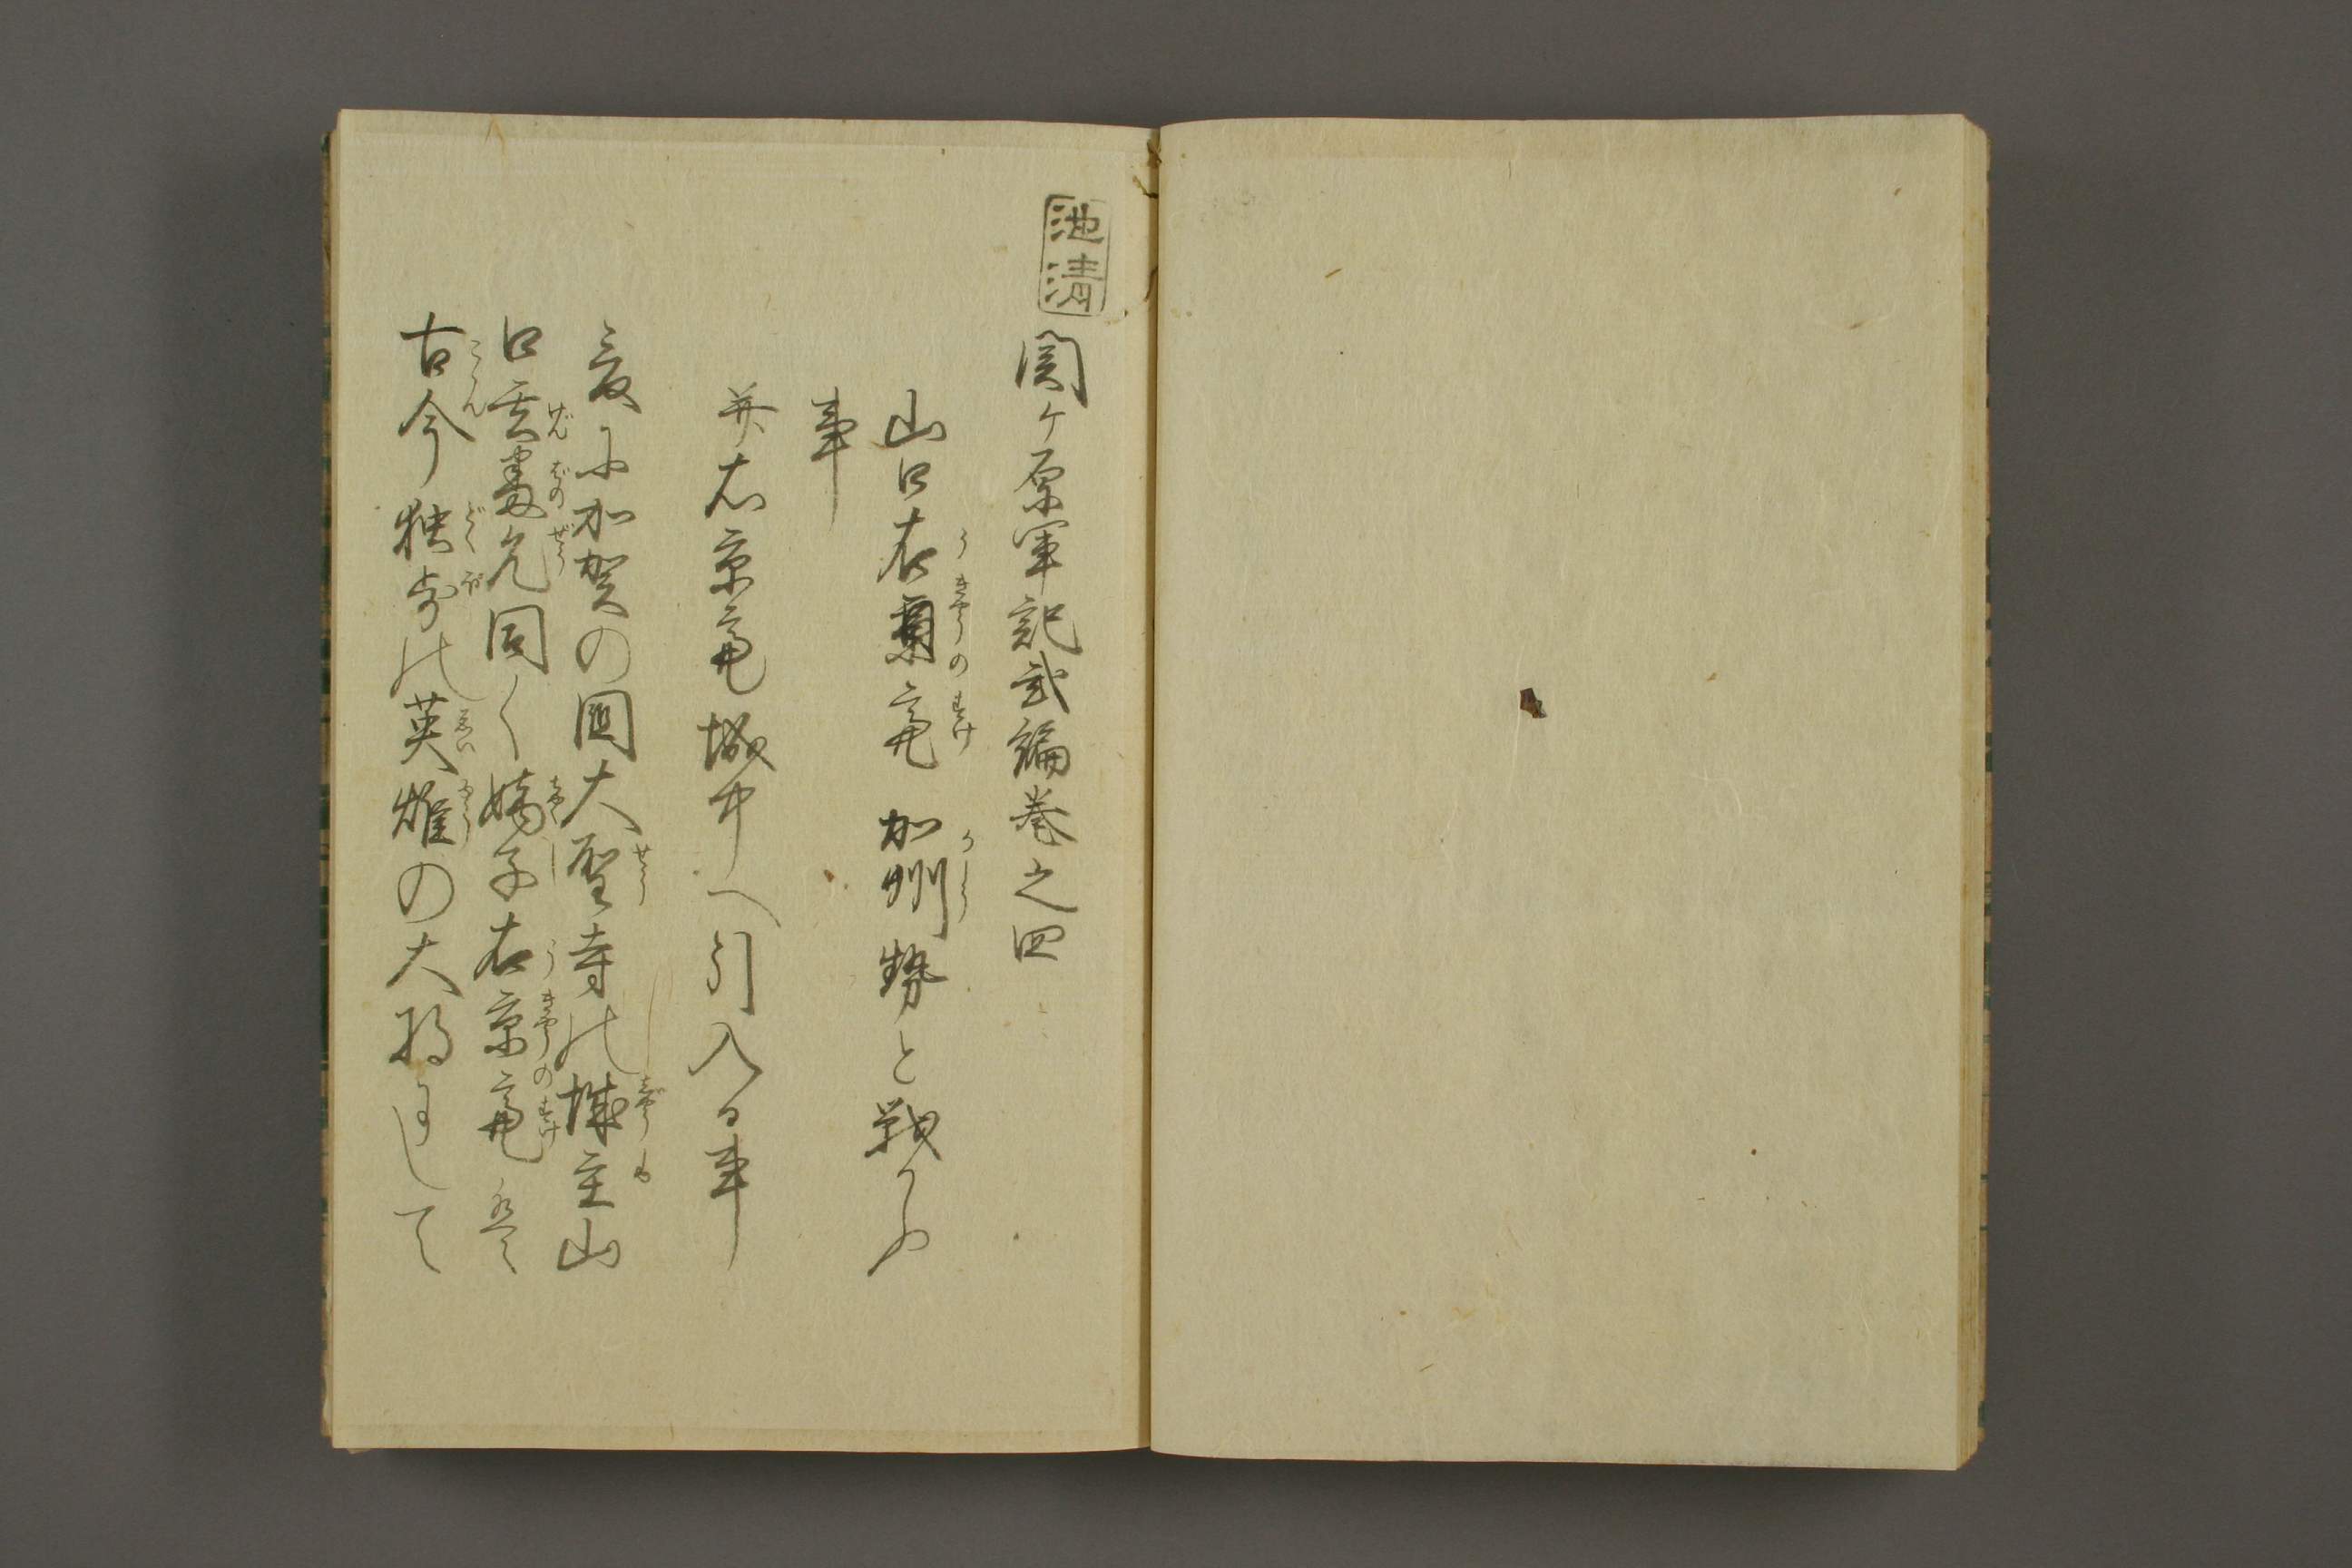 池清
関ヶ原軍記弐編巻之四
山口右京亮加州勢と戦かふ
事
并右京亮城中へ引入る事
爰に加賀の国大聖寺の城主山
口玄蕃允同く嫡子右京亮是
古今独歩の英雄の大将にして